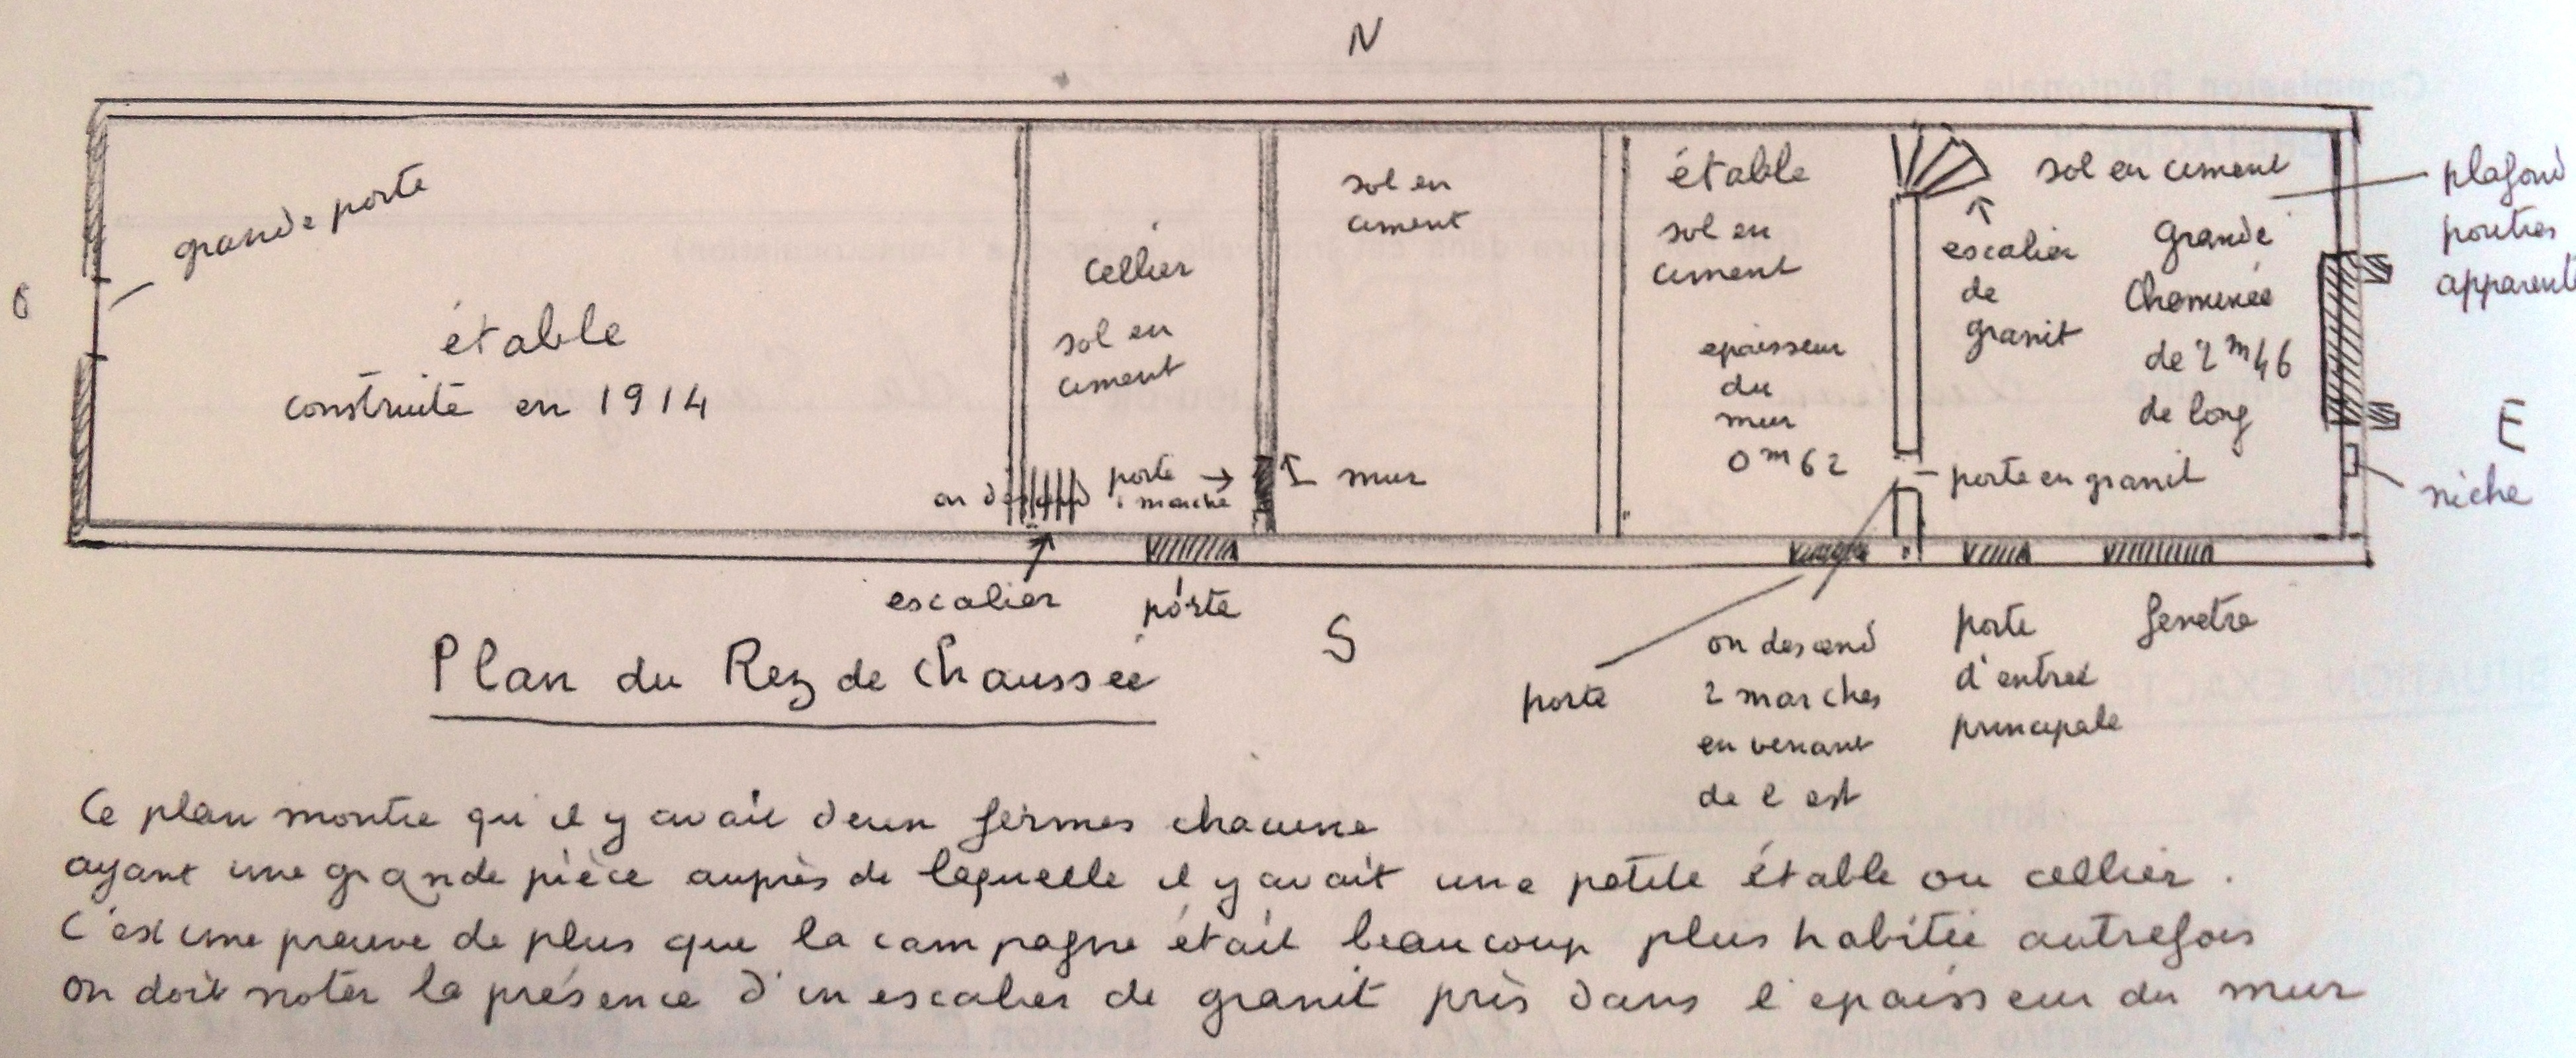 N
grande porte
étable
construite en 1914
O
cellier
sol en
ciment
on descend
porte →
1 marche
mur
sol en
ciment
étable
sol en
ciment
epaisseur
du
mur
0m62
sol en ciment
escalier
de
granit
Grande
Cheminée
de 2m46
de long
porte en granit
plafond
poutres
apparent
E
niche
escalier
porte
S
porte
on descend
2 marches
en venant
de l est
porte
d'entreé
principale
fenetre
Plan du Rez de Chausseé
Ce plan montre qu'il y avait deux fermes chacune
ayant une grande pièce auprès de laquelle il y avait une petite étable ou cellier.
C'est une preuve de plus que la campagne était beaucoup plus habitée autrefois
on doit noter la présence d'un escalier de granit pris dans l'epaisseur du mur